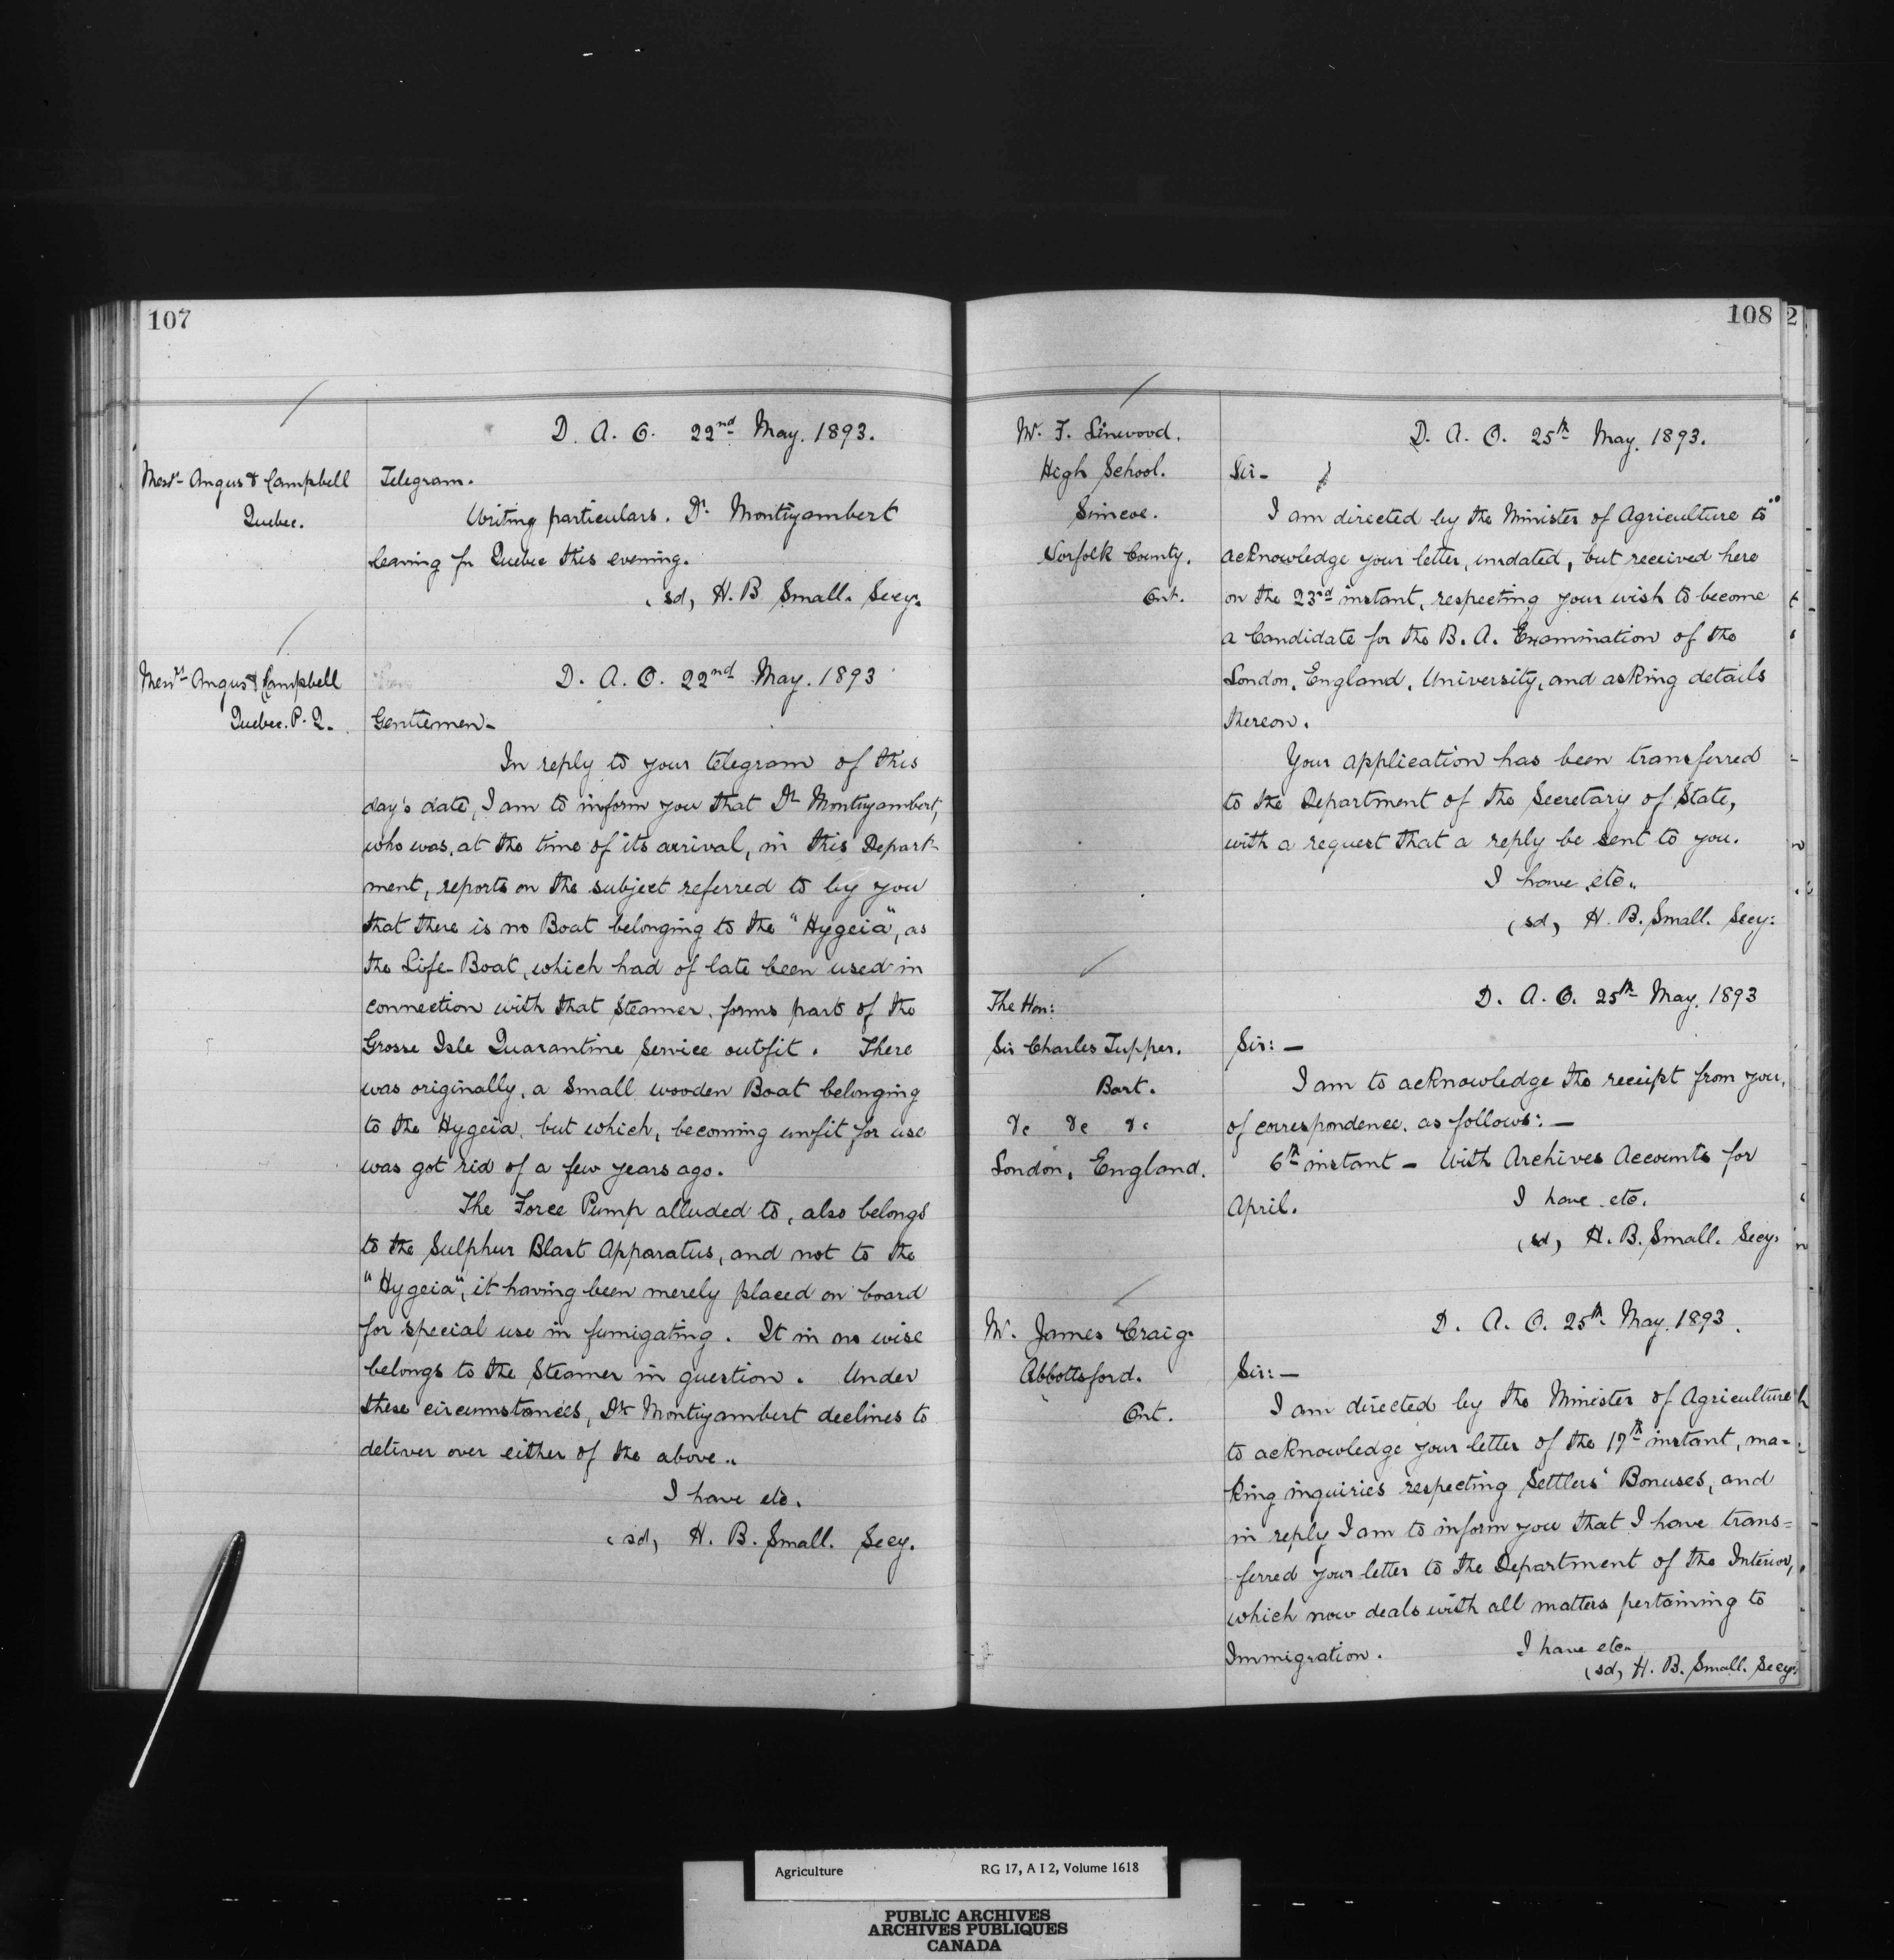 107
D. A. O. 22nd May. 1893.
Messrs Angus & Campbell
Quebec.
Telegram.
Writing particulars. Dr. Montizambert
leaving for Quebec this evening.
(sd) H. B Small. Secy.
Messrs Angus & Campbell
Quebec. P. Q.
D. A. O. 22nd May. 1893
Gentlemen-
In reply to your telegram of this
day's date, I am to inform you that Dr Montizambert,
who was, at the time of its arrival, in this Depart-
ment, reports on the subject referred to by you
that there is no Boat belonging to the "Hygeia", as
the Life-Boat, which had of late been used in
connection with that Steamer, forms part of the
Grosse Isle Quarantine Service outfit. There
was originally, a small wooden Boat belonging
to the Hygeia, but which, becoming unfit for use
was got rid of a few years ago.
The Force Pump alluded to, also belongs
to the Sulphur Blast Apparatus, and not to the
"Hygeia", it having been merely placed on board
for special use in fumigating. It in no wise
belongs to the Steamer in question. Under
these circumstances, Dr Montizambert declines to
deliver over either of the above..
I have etc.
(sd) H. B. Small. Secy.
108
2
W. F. Linwood.
High School.
Simcoe.
Norfolk County.
Ont.
D. A. O. 25th May. 1893.
Sir-
I am directed by the Minister of Agriculture to
acknowledge your letter, undated, but received here
on the 23rd instant, respecting your wish to become
a Candidate for the B. A. Examination of the
London, England, University, and asking details
thereon.
Your application has been transferred
to the Department of the Secretary of State,
with a request that a reply be sent to you.
I have etc..
(sd) H. B. Small. Secy:
The Hon:
Sir Charles Tupper.
Bart.
&c &c &c
London, England.
D. A. O. 25th May. 1893
Sir:—
I am to acknowledge the receipt from you,
of correspondence, as follows:—
6th instant - With Archives Accounts for
April.
I have etc.
(sd) H. B. Small. Secy.
M. James Craig.
Abbottsford.
Ont.
D. A. O. 25th May. 1893.
Sir:—
I am directed by the Minister of Agriculture
to acknowledge your letter of the 17th instant, ma=
king inquiries respecting Settlers' Bonuses, and
in reply I am to inform you that I have trans=
ferred your letter to the Department of the Interior,
which now deals with all matters pertaining to
Immigration.
I have etc..
(sd) H. B. Small. Secy:
Agriculture RG 17, A I 2, Volume 1618
PUBLIC ARCHIVES
ARCHIVES PUBLIQUES
CANADA